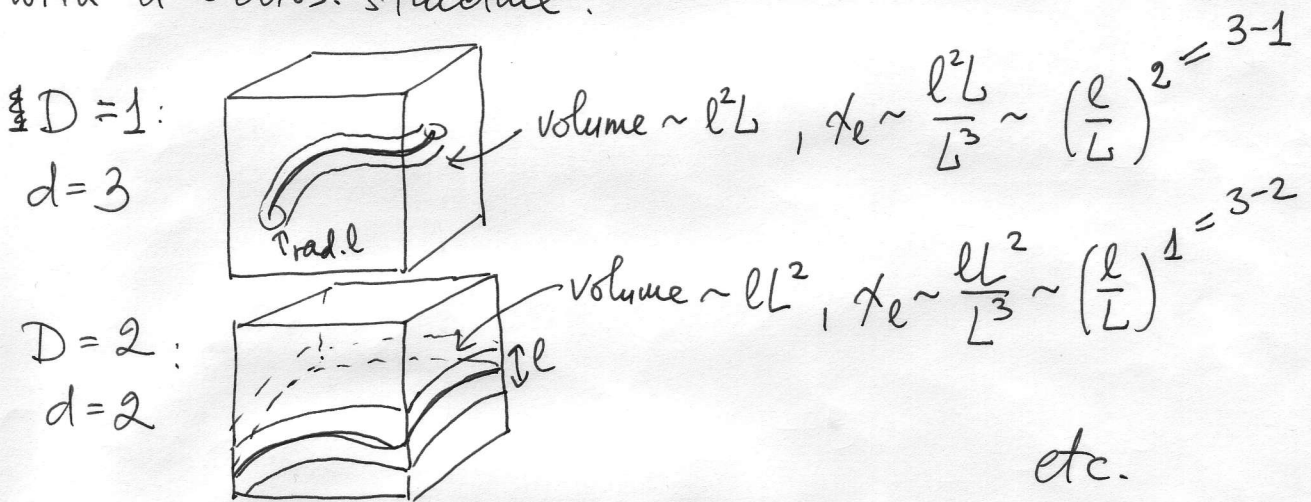 with a
D = 1:
d = 3
rad. l
volume ~ l²L , χ_l ~ l²L / L³ ~ (l/L)² = 3-1
D = 2 :
d = 2
l
volume ~ lL² , χ_l ~ lL² / L³ ~ (l/L)¹ = 3-2
etc.